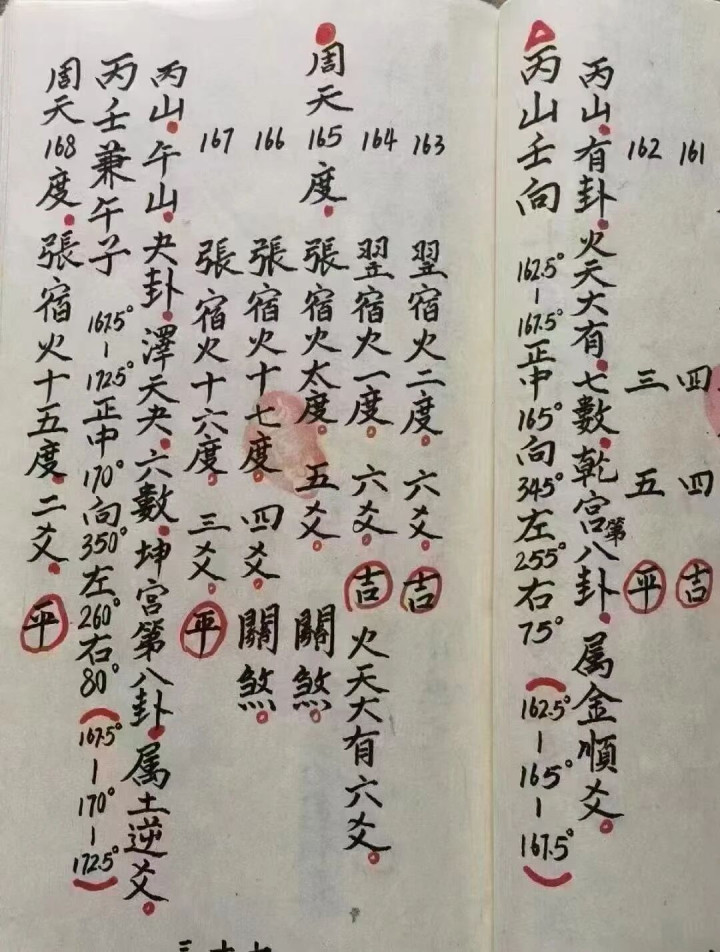 161 四 四 吉
162 三 五 平
丙山.有卦.火天大有.七數.乾宮第八卦.属金順爻。
丙山壬向 162.5°-167.5°正中165°向345°左255°右75°(162.5°-165°-167.5°)
163 翌宿火二度。六爻。吉
164 翌宿火一度。六爻。吉 火天大有六爻。
周天165度.張宿火太度。五爻。關煞。
166 張宿火十七度。四爻。關煞。
167 張宿火十六度。三爻。平
丙山.午山.夬卦.澤天夬.六數.坤宮第八卦.属土逆爻。
丙壬兼午子 167.5°-172.5°正中170°向350°左260°右80°(167.5°-170°-172.5°)
周天168度.張宿火十五度.二爻。平